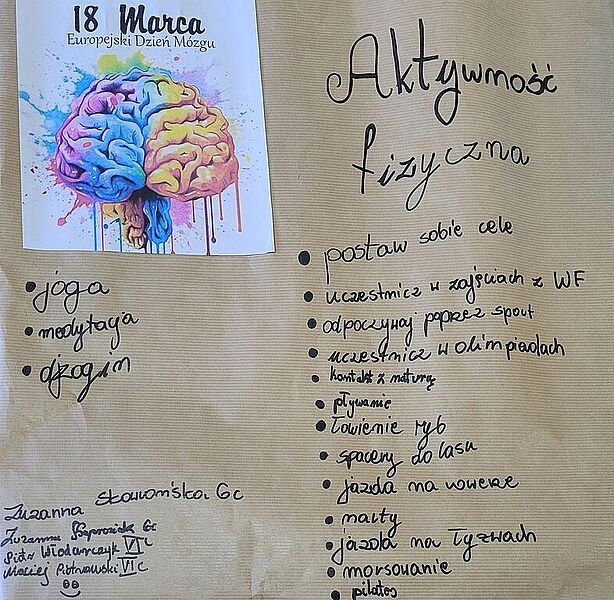 18 Marca
Europejski Dzień Mózgu
Aktywność
fizyczna
• joga
• medytacja
• dżogin
• postaw sobie cele
• uczestnicz w zajściach z WF
• odpoczywaj poprzez sport
• uczestnicz w olimpiadach
• kontakt z naturą
• pływanie
• łowienie ryb
• spacery do lasu
• jazda na rowerze
• narty
• jazda na łyżwach
• morsowanie
• pilates
Zuzanna Słowomska 6c
Zuzanna 6c
Piotr Włodarczyk VI c
Maciej Piotrowski VI c